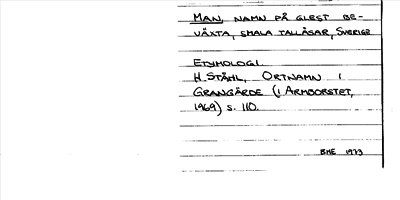 MAN, NAMN PÅ GLEST BE-
VÄXTA, SMALA TALLÅSAR, SVERIGE
ETYMOLOGI.
H. STÅHL, ORTNAMN I
GRANGÄRDE (I ARMBORSTET,
1969) S. 110.
BME 1973